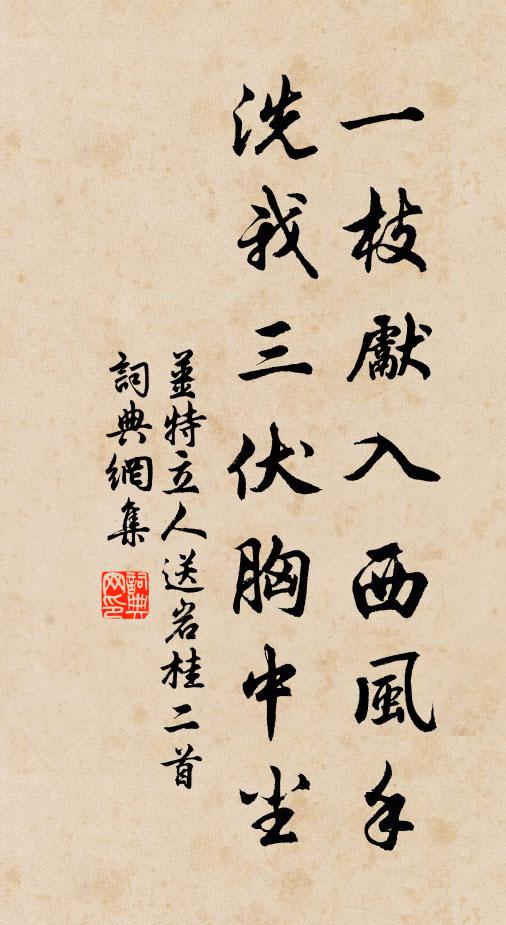 一枝獻入西風手
洗我三伏胸中尘
薑特立人送岩桂二首
詞典網集
詞典网印